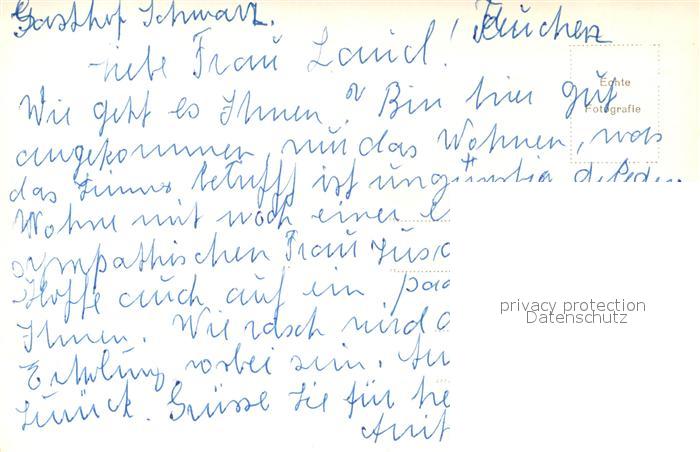 Gasthof Schwarz.
Liebe Frau Land!
Echte
Fotografie
Wie geht es Ihnen? Bin hier gut
angekommen, nur das Wohnen, was
das Zimmer betrifft ist ungünstig
Wohne mit noch einer
sympathischen Frau
Hoffe auch auf ein paa
Ihnen. Wie rasch wird
Erholung vorbei sein.
zurück. Grüsse Sie für he
Anit
privacy protection
Datenschutz